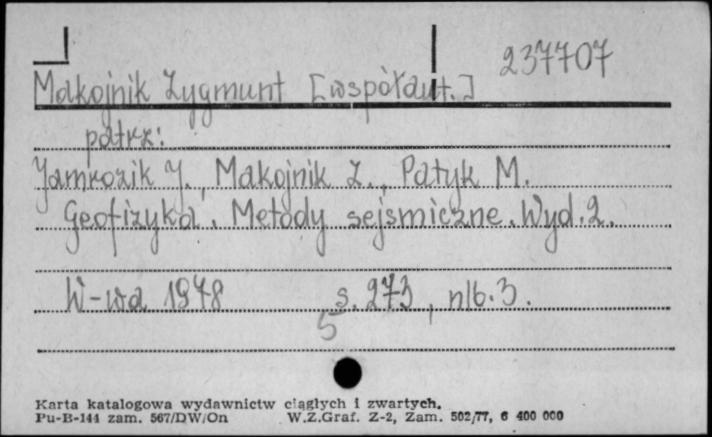 237707
Makojnik Zygmunt [współaut.]
patrz:
Jamrozik J., Makojnik Z., Patyk M.
Geofizyka. Metody sejsmiczne. Wyd. 2.
W-wa 1978 s. 273, nlb. 3.
5
Karta katalogowa wydawnictw ciągłych i zwartych.
Pu-B-141 zam. 567/DW/On W.Z.Graf. Z-2, Zam. 502/77, 6 400 000